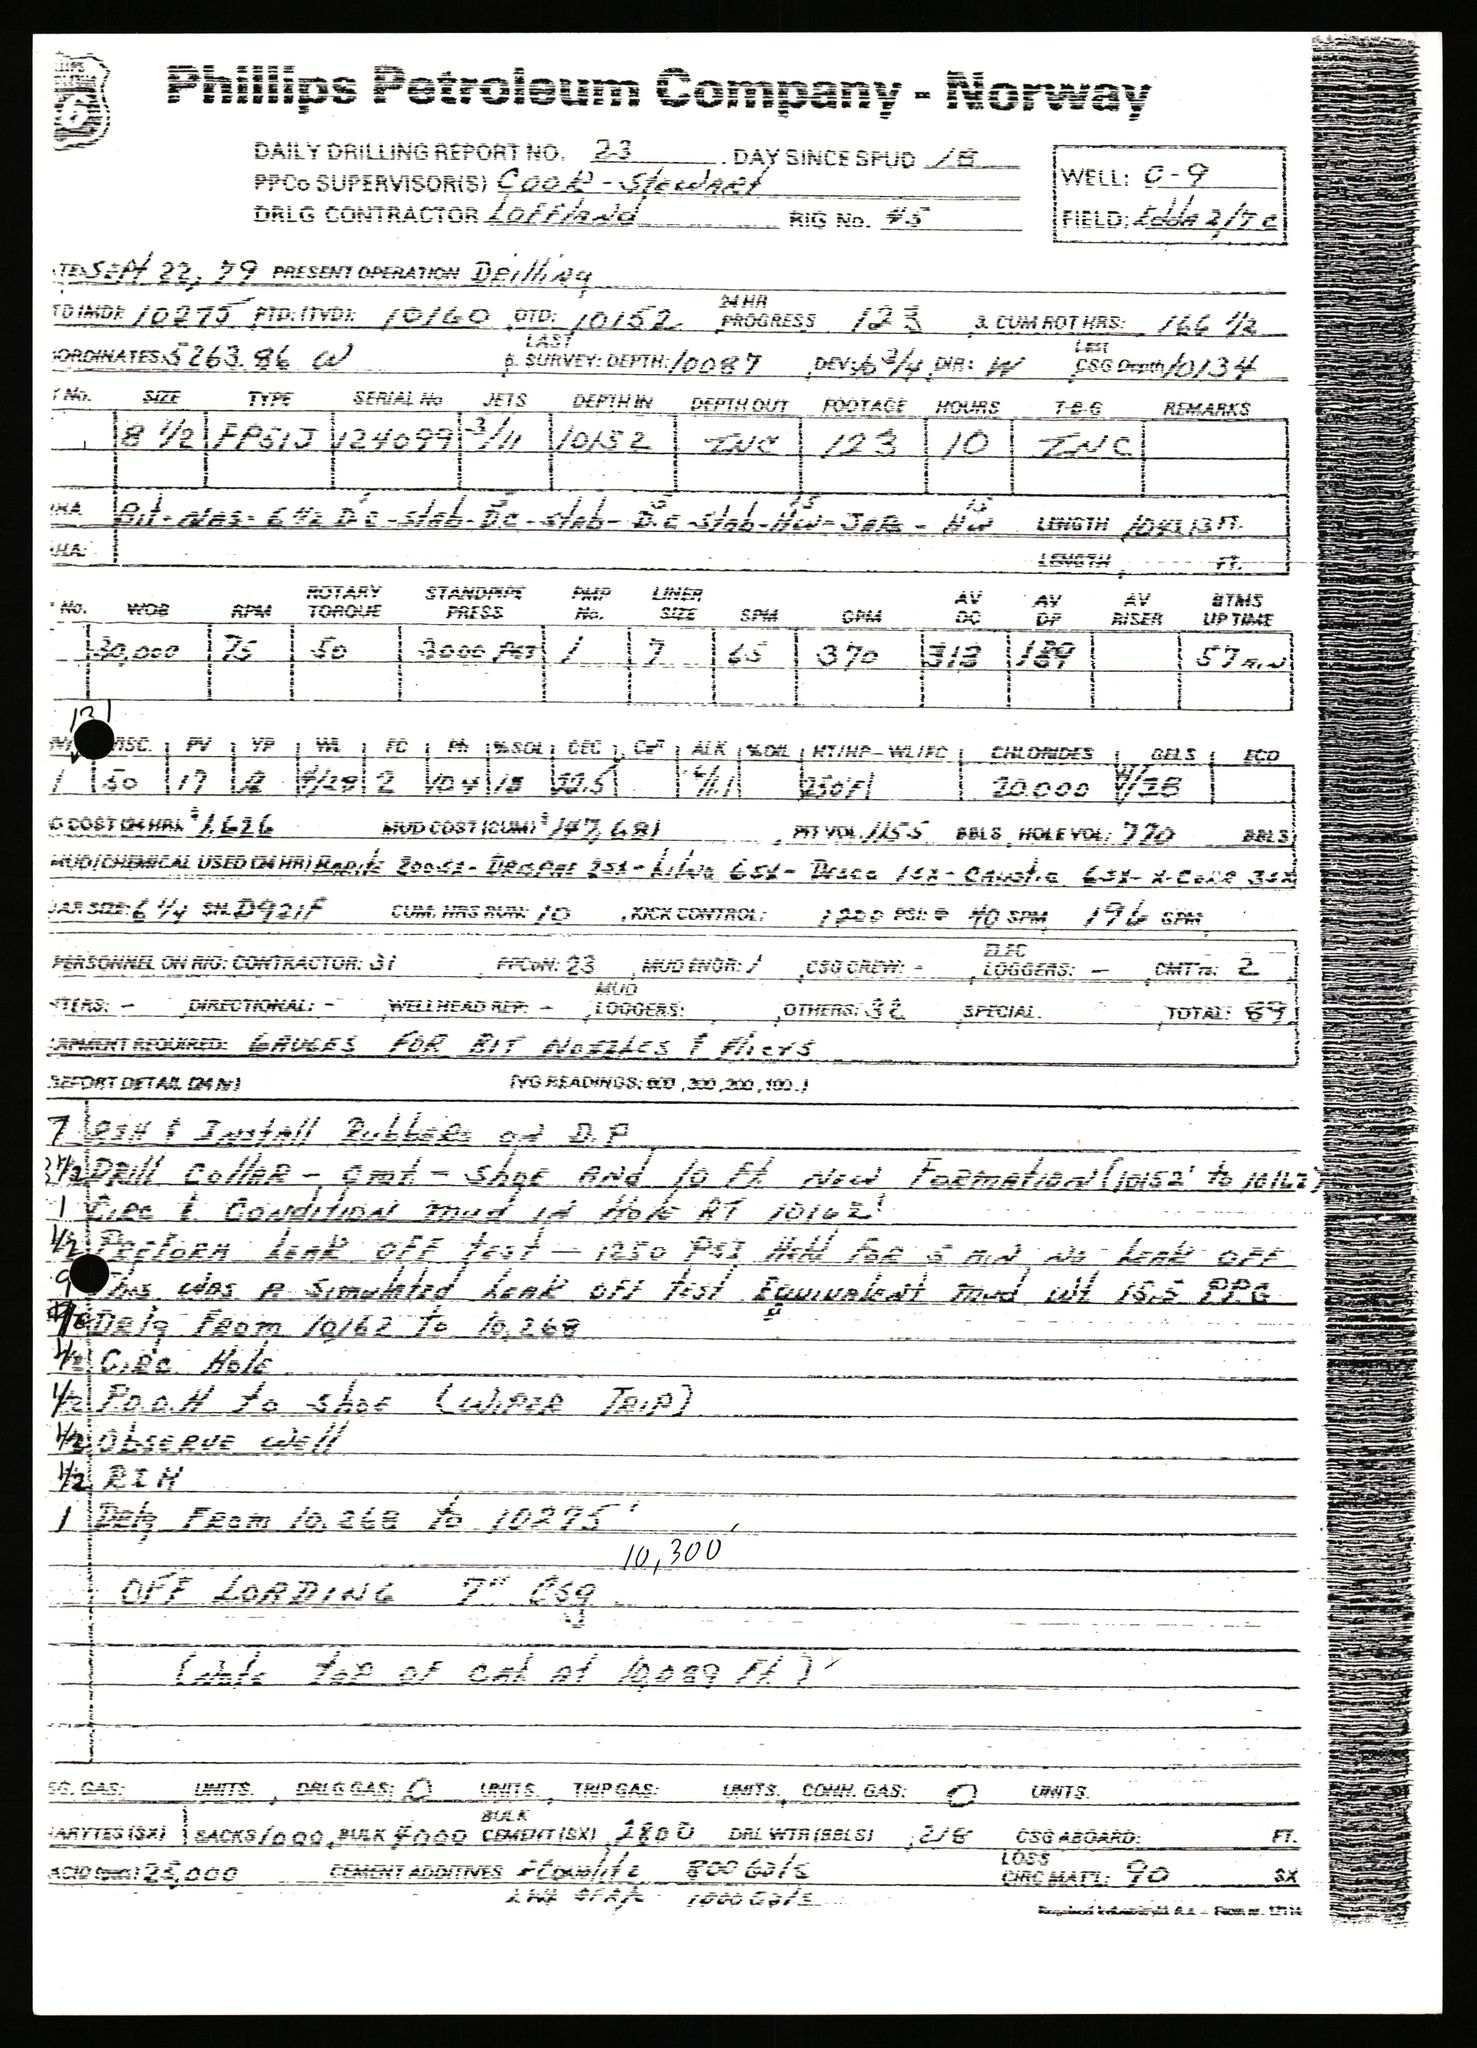 Phillips Petroleum Company - Norway
66
DAILY DRILLING REPORT NO. 23 DAY SINCE SPUD 18
PPCo SUPERVISOR(S) COOK - STEWART
DRLG CONTRACTOR LOFFLAND RIG No. 45
WELL: C-9
FIELD: Edda 2/7 C
SEPT 22, 79 PRESENT OPERATION Drilling
TD (MD): 10275 PTD: (TVD): 10160 OTD: 10152 24 HR PROGRESS 123 3. CUM ROT HRS: 166 1/2
ORDINATES: 5263.86 W LAST SURVEY: DEPTH: 10087 DEV: 6 3/4 DIR: W LAST CSG Depth 10134
No. SIZE TYPE SERIAL No JETS DEPTH IN DEPTH OUT FOOTAGE HOURS T-B-G REMARKS
8 1/2 FP51J 124099 3/11 10152 INC 123 10 INC
Bit - NBS - 6 1/2 DC - Stab - DC - Stab - DC - Stab - HW - JARS - HW LENGTH FT.
LENGTH FT.
No. WOB RPM ROTARY TORQUE STANDPIPE PRESS PMP No. LINER SIZE SPM GPM AV DC AV DP AV RISER BTMS UP TIME
30,000 75 50 3000 PSI 1 7 65 370 313 189 57 MIN
131
VISC. PV YP WL FC PH % SOL CEC Ca++ ALK % OIL HT/HP - WL/FC CHLORIDES BELS ECD
50 17 2 10.4 18 22.5 250°F 20.000
COST (24 HR). $1,626 MUD COST (CUM) $147,681 PIT VOL: 1155 BBLS HOLE VOL: 770 BBLS
MUD/CHEMICAL USED (24 HR) Barite 200sx - Drispac 2sx - 6sx - Desco 1sx - Caustic 6sx - 3sx
JAR SIZE: 6 1/4 SN. D921F CUM. HRS RUN: 10 KICK CONTROL: 1200 PSI @ 40 SPM 196 GPM
PERSONNEL ON RIG: CONTRACTOR: 31 PPCoN: 23 MUD ENGR: 1 CSG CREW: - ELEC LOGGERS: - CMT'rs: 2
DIRECTIONAL: - WELLHEAD REP: - MUD LOGGERS: OTHERS: 32 SPECIAL TOTAL: 89
EQUIPMENT REQUIRED: GAUGES FOR BIT NOZZLES & Pliers
REPORT DETAIL (24 hr) (VG READINGS: 600, 300, 200, 100.)
7 RIH & INSTALL RUBBERS ON D.P
3 1/2 DRILL COLLAR - CMT - SHOE AND 10 Ft. NEW FORMATION (10152' to 10162)
1 CIRC & CONDITION MUD IN HOLE AT 10162'
1/2 PERFORM LEAK OFF TEST - 1250 PSI HELD FOR 5 MIN NO LEAK OFF
9 This WAS A Simulated LEAK OFF TEST EQUIVALENT MUD Wt 15.5 PPG
Drlg FROM 10,162 to 10,268
1/2 CIRC Hole
1/2 P.O.O.H to Shoe (WIPER TRIP)
1/2 OBSERVE WELL
1/2 RIH
1 Drlg FROM 10,268 to 10275'
10,300'
OFF LOADING 7" Csg
(Note TOP OF CMT At 10,089 Ft.)
GAS: UNITS, DRLG GAS: 0 UNITS, TRIP GAS: UNITS, CONN. GAS: 0 UNITS
BARYTES (SX) SACKS 1000, BULK 4000 BULK CEMENT (SX) 2800 DRL WTR (BBLS) 218 CSG ABOARD: FT.
ACID 25,000 CEMENT ADDITIVES Econolite 800 Gals LOSS CIRC MAT'L: 90 SX
1000 Gals